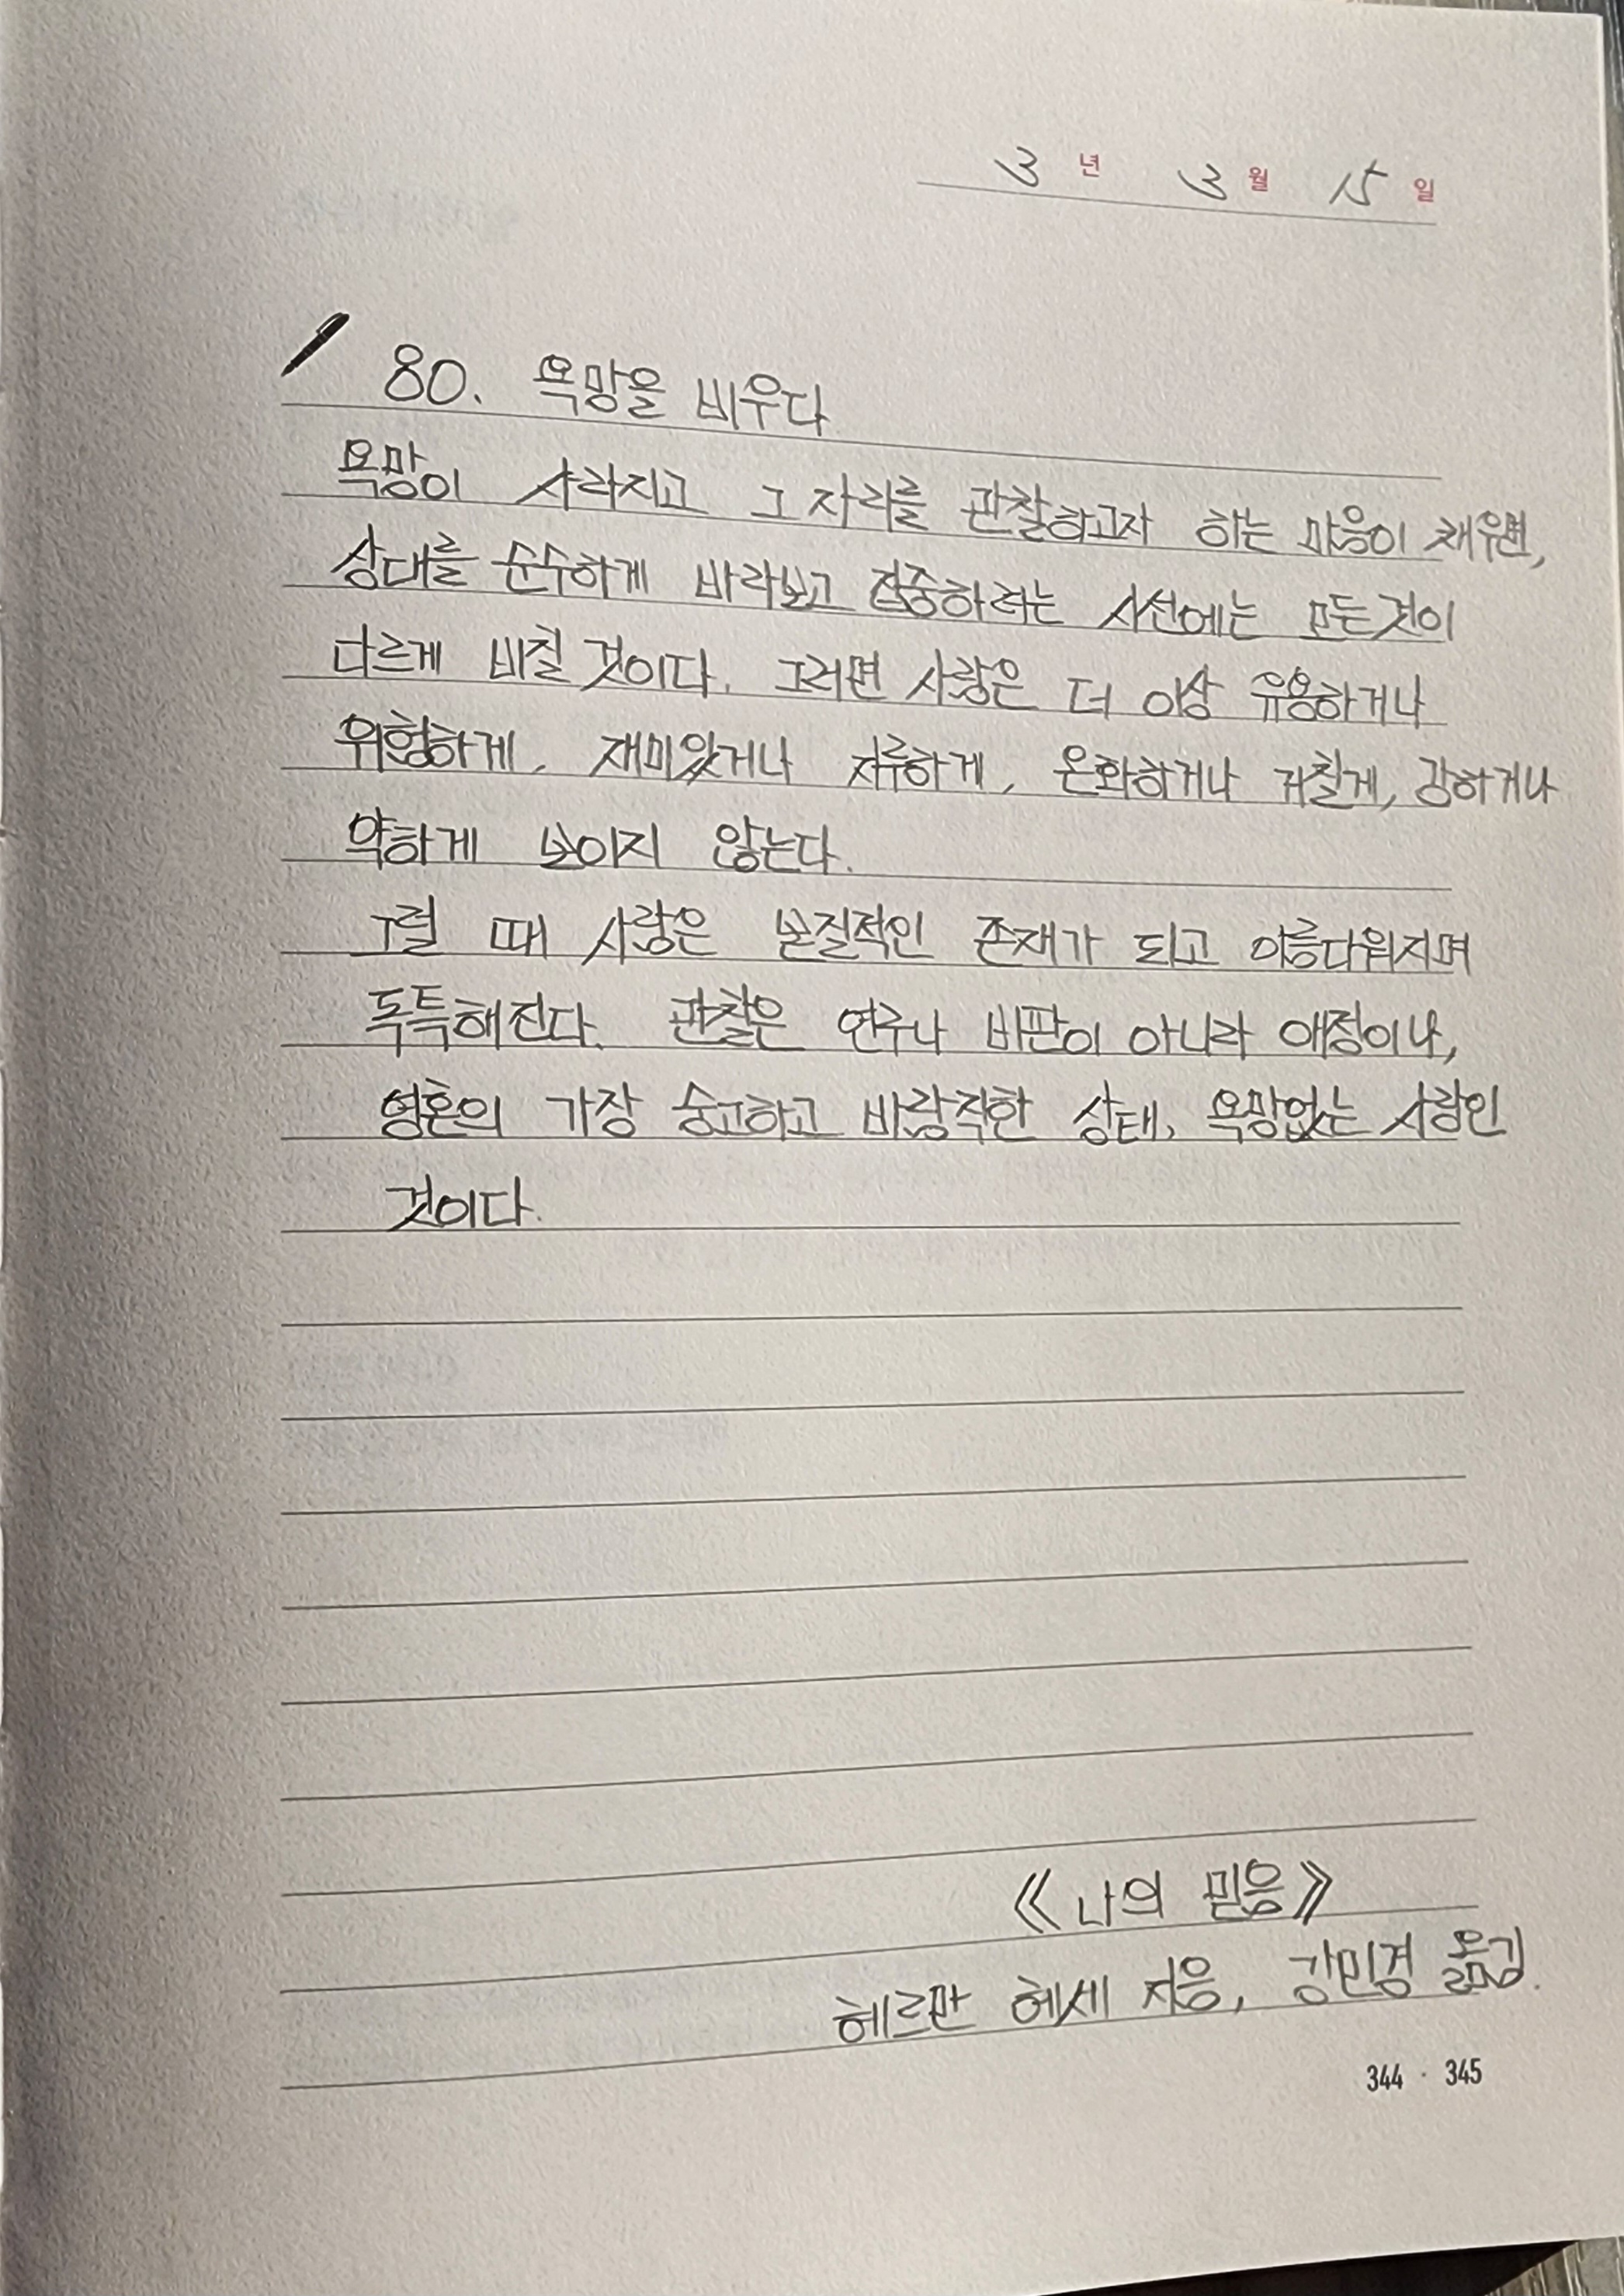 3년 3월 15일
80. 욕망을 비우다
욕망이 사라지고 그 자리를 관찰하고자 하는 마음이 채우면,
상대를 순수하게 바라보고 집중하려는 시선에는 모든것이
다르게 비칠 것이다. 그러면 사람은 더 이상 유용하거나
위험하게, 재미있거나 지루하게, 온화하거나 거칠게, 강하거나
약하게 보이지 않는다.
그럴 때 사람은 본질적인 존재가 되고 아름다워지며
독특해진다. 관찰은 연구나 비판이 아니라 애정이나,
영혼의 가장 숭고하고 바람직한 상태, 욕망없는 사랑인
것이다.
《나의 믿음》
헤르만 헤세 지음, 강민경 옮김.
344 · 345